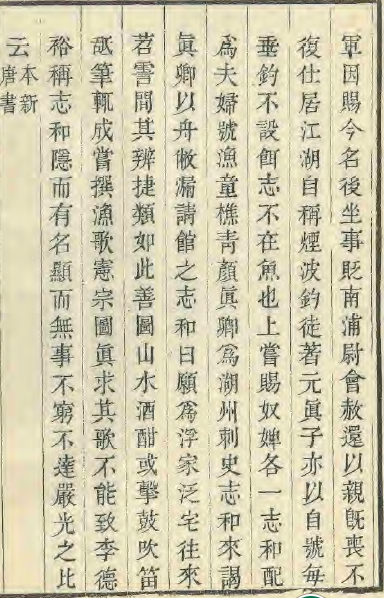 軍因賜今名後坐事貶南浦尉會赦還以親旣喪不
復仕居江湖自稱煙波釣徒著元眞子亦以自號每
垂釣不設餌志不在魚也上嘗賜奴婢各一志和配
爲夫婦號漁童樵青顔眞卿爲湖州刺史志和來謁
眞卿以舟敝漏請館之志和曰願爲浮家泛宅往來
苕霅間其辨捷類如此善圖山水酒酣或擊鼓吹笛
䑛筆輒成嘗撰漁歌憲宗圖眞求其歌不能致李德
裕稱志和隱而有名顯而無事不窮不達嚴光之比
云本新
唐書